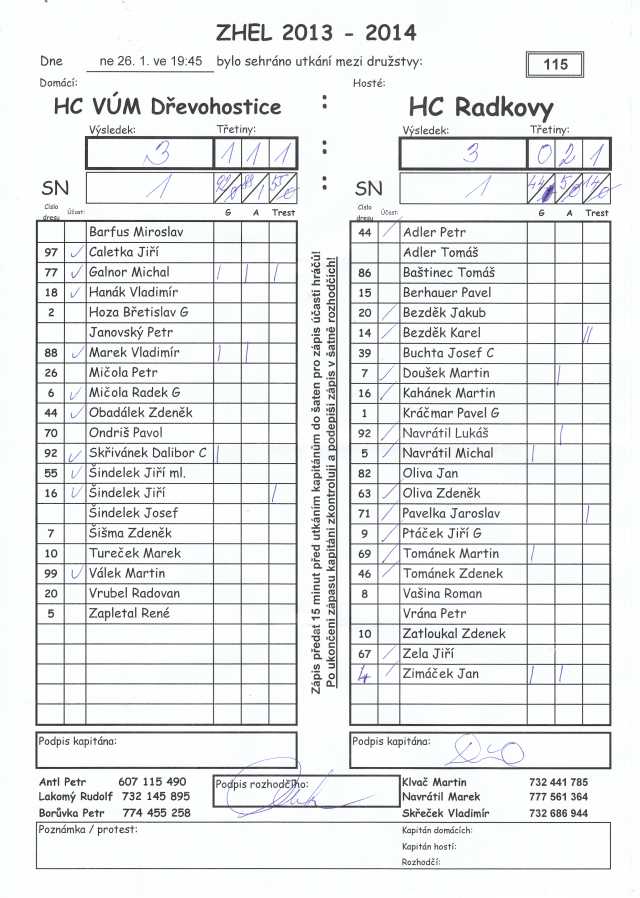 ZHEL 2013 - 2014
Dne ne 26. 1. ve 19:45 bylo sehráno utkání mezi družstvy: 115
Domácí: Hosté:
HC VÚM Dřevohostice : HC Radkovy
Výsledek: Třetiny: Výsledek: Třetiny:
3 1 1 1 : 3 0 2 1
SN 1 : SN 1
Číslo dresu Účast: G A Trest Číslo dresu Účast: G A Trest
Barfus Miroslav 44 / Adler Petr
97 ✓ Caletka Jiří Adler Tomáš
77 ✓ Galnor Michal / / / 86 Baštinec Tomáš
18 ✓ Hanák Vladimír 15 Berhauer Pavel
2 Hoza Břetislav G 20 / Bezděk Jakub
Janovský Petr 14 / Bezděk Karel //
88 ✓ Marek Vladimír / / 39 Buchta Josef C
26 Mičola Petr 7 / Doušek Martin /
6 ✓ Mičola Radek G 16 / Kahánek Martin
44 ✓ Obadálek Zdeněk 1 Kráčmar Pavel G
70 Ondriš Pavol 92 / Navrátil Lukáš /
92 ✓ Skřivánek Dalibor C / 5 / Navrátil Michal /
55 ✓ Šindelek Jiří ml. 82 Oliva Jan
16 ✓ Šindelek Jiří / 63 / Oliva Zdeněk
Šindelek Josef 71 / Pavelka Jaroslav /
7 Šišma Zdeněk 9 / Ptáček Jiří G
10 Tureček Marek 69 / Tománek Martin /
99 ✓ Válek Martin 46 / Tománek Zdenek
20 Vrubel Radovan 8 Vašina Roman
5 Zapletal René Vrána Petr
10 Zatloukal Zdenek
67 / Zela Jiří
4 / Zimáček Jan / /
Zápis předat 15 minut před utkáním kapitánům do šaten pro zápis účasti hráčů!
Po ukončení zápasu kapitáni zkontrolují a podepíší zápis v šatně rozhodčích!
Podpis kapitána: Podpis kapitána:
Antl Petr 607 115 490 Podpis rozhodčího: Klvač Martin 732 441 785
Lakomý Rudolf 732 145 895 Navrátil Marek 777 561 364
Borůvka Petr 774 455 258 Skřeček Vladimír 732 686 944
Poznámka / protest: Kapitán domácích:
Kapitán hostí:
Rozhodčí: